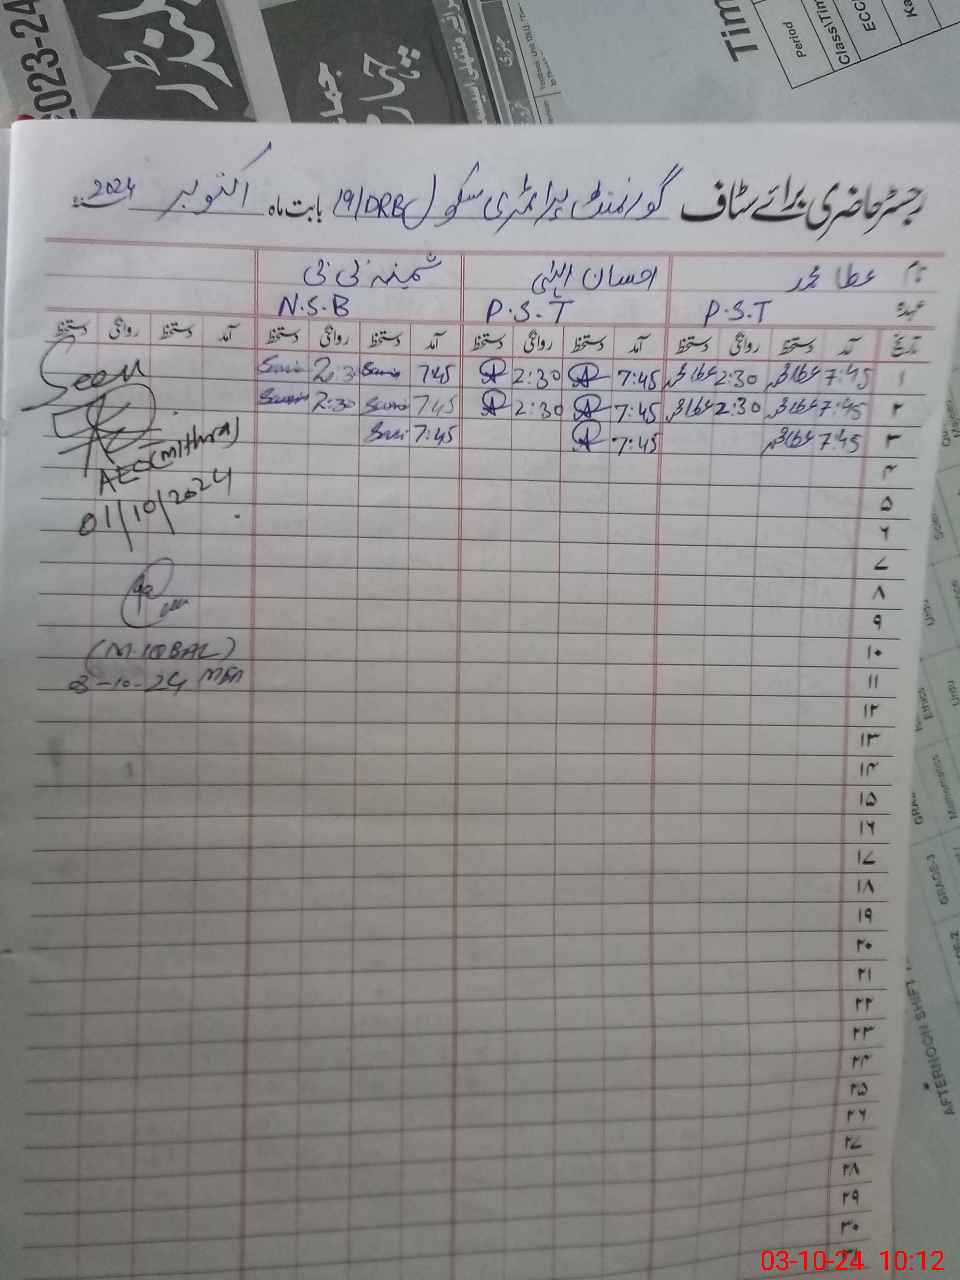 2023-24
Tim
Period
Class\Tim
ECC
Ka
رجسٹر حاضری برائے سٹاف گورنمنٹ پرائمری سکول 19/DRB بابت ماہ اکتوبر 2024
نام عطا محمد احسان الہٰی ثمینہ بی بی
عہدہ P.S.T P.S.T N.S.B
تاریخ آمد دستخط روانگی دستخط آمد دستخط روانگی دستخط آمد دستخط روانگی دستخط آمد دستخط روانگی دستخط
۱ 7:45 عطا محمد 2:30 عطا محمد 7:45 2:30 7:45 2:30
۲ 7:45 عطا محمد 2:30 عطا محمد 7:45 2:30 7:45 2:30
۳ 7:45 عطا محمد 7:45 7:45
۴
۵
۶
۷
۸
۹
۱۰
۱۱
۱۲
۱۳
۱۴
۱۵
۱۶
۱۷
۱۸
۱۹
۲۰
۲۱
۲۲
۲۳
۲۴
۲۵
۲۶
۲۷
۲۸
۲۹
۳۰
Seen
AEO (Mithra)
01/10/2024
(M. IQBAL)
3-10-24 MEA
Urdu
Ethics
Urdu
Mathematics
GRADE-3
AFTERNOON SHIFT
03-10-24 10:12